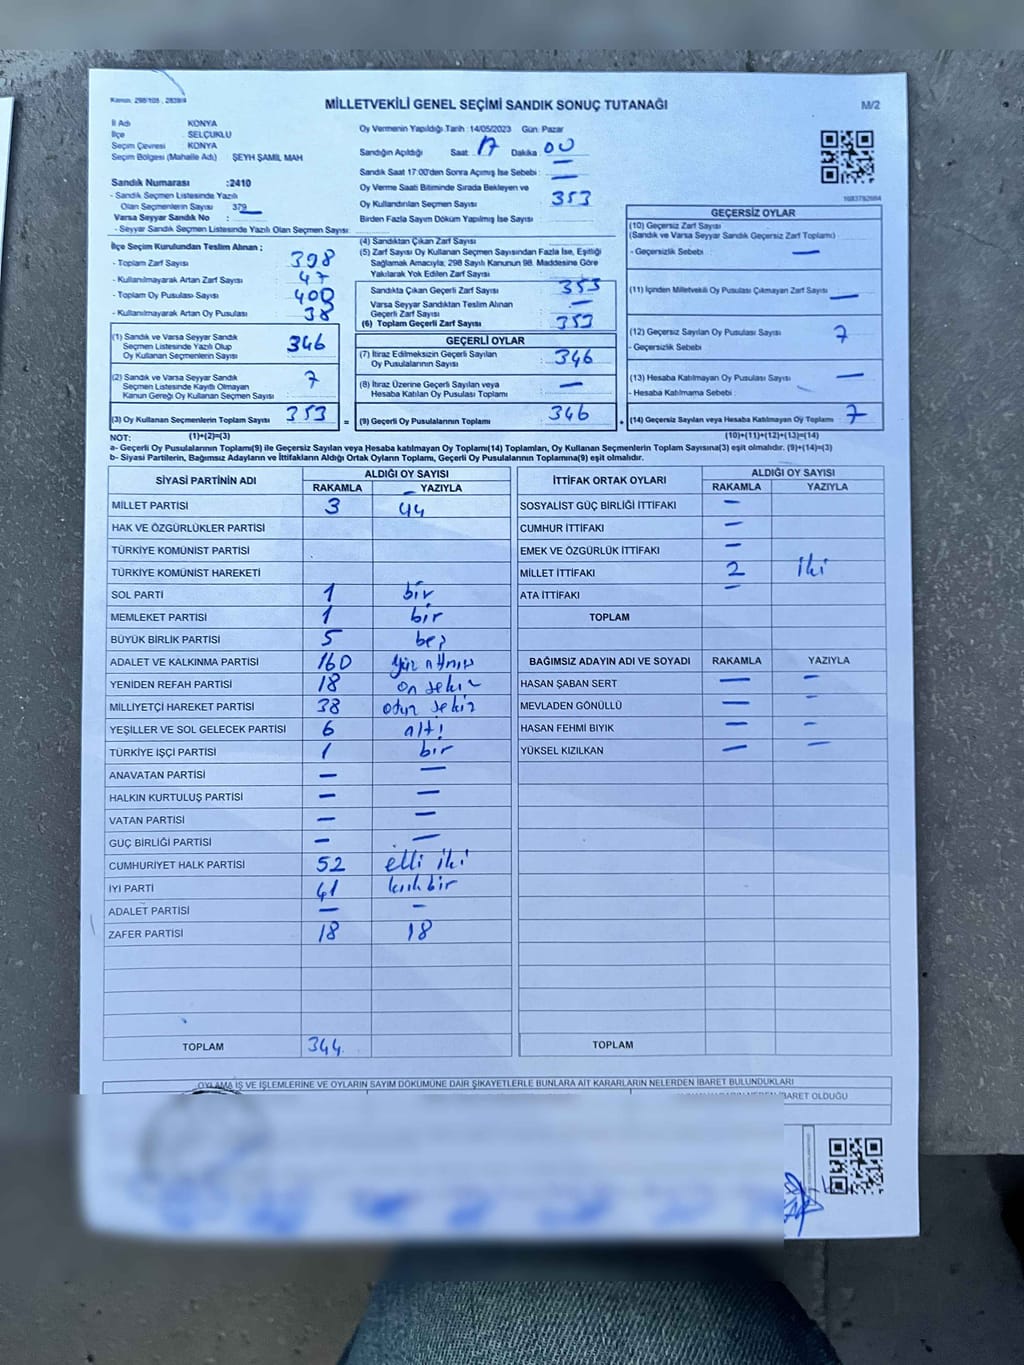 Kanun. 298/105 , 2839/4
MİLLETVEKİLİ GENEL SEÇİMİ SANDIK SONUÇ TUTANAĞI
M/2
İl Adı KONYA
İlçe SELÇUKLU
Seçim Çevresi KONYA
Seçim Bölgesi (Mahalle Adı) ŞEYH ŞAMİL MAH
Sandık Numarası :2410
- Sandık Seçmen Listesinde Yazılı
Olan Seçmenlerin Sayısı 379
Varsa Seyyar Sandık No :
- Seyyar Sandık Seçmen Listesinde Yazılı Olan Seçmen Sayısı:
Oy Vermenin Yapıldığı Tarih :14/05/2023 Gün: Pazar
Sandığın Açıldığı Saat: 17 Dakika: 00
Sandık Saat 17:00'den Sonra Açımış İse Sebebi : —
Oy Verme Saati Bitiminde Sırada Bekleyen ve —
Oy Kullandırılan Seçmen Sayısı : 353
Birden Fazla Sayım Döküm Yapılmış İse Sayısı :
1083782084
İlçe Seçim Kurulundan Teslim Alınan ;
- Toplam Zarf Sayısı : 398
- Kullanılmayarak Artan Zarf Sayısı : 47
- Toplam Oy Pusulası Sayısı : 400
- Kullanılmayarak Artan Oy Pusulası : 38
(1) Sandık ve Varsa Seyyar Sandık
Seçmen Listesinde Yazılı Olup
Oy Kullanan Seçmenlerin Sayısı : 346
(2) Sandık ve Varsa Seyyar Sandık
Seçmen Listesinde Kayıtlı Olmayan
Kanun Gereği Oy Kullanan Seçmen Sayısı : 7
(3) Oy Kullanan Seçmenlerin Toplam Sayısı : 353
(4) Sandıktan Çıkan Zarf Sayısı :
(5) Zarf Sayısı Oy Kullanan Seçmen Sayısından Fazla İse, Eşitliği
Sağlamak Amacıyla; 298 Sayılı Kanunun 98. Maddesine Göre
Yakılarak Yok Edilen Zarf Sayısı :
Sandıkta Çıkan Geçerli Zarf Sayısı : 353
Varsa Seyyar Sandıktan Teslim Alınan
Geçerli Zarf Sayısı : —
(6) Toplam Geçerli Zarf Sayısı : 353
GEÇERLİ OYLAR
(7) İtiraz Edilmeksizin Geçerli Sayılan
Oy Pusulalarının Sayısı : 346
(8) İtiraz Üzerine Geçerli Sayılan veya
Hesaba Katılan Oy Pusulası Toplamı : —
= (9) Geçerli Oy Pusulalarının Toplamı : 346
GEÇERSİZ OYLAR
(10) Geçersiz Zarf Sayısı
(Sandık ve Varsa Seyyar Sandık Geçersiz Zarf Toplamı) :
- Geçersizlik Sebebi : —
(11) İçinden Milletvekili Oy Pusulası Çıkmayan Zarf Sayısı : —
(12) Geçersiz Sayılan Oy Pusulası Sayısı : 7
- Geçersizlik Sebebi :
(13) Hesaba Katılmayan Oy Pusulası Sayısı : —
- Hesaba Katılmama Sebebi :
+ (14) Geçersiz Sayılan veya Hesaba Katılmayan Oy Toplamı : 7
NOT: (1)+(2)=(3) (10)+(11)+(12)+(13)=(14)
a- Geçerli Oy Pusulalarının Toplamı(9) ile Geçersiz Sayılan veya Hesaba katılmayan Oy Toplamı(14) Toplamları, Oy Kullanan Seçmenlerin Toplam Sayısına(3) eşit olmalıdır. (9)+(14)=(3)
b- Siyasi Partilerin, Bağımsız Adayların ve İttifakların Aldığı Ortak Oyların Toplamı, Geçerli Oy Pusulalarının Toplamına(9) eşit olmalıdır.
SİYASİ PARTİNİN ADI ALDIĞI OY SAYISI
RAKAMLA YAZIYLA
MİLLET PARTİSİ 3 44
HAK VE ÖZGÜRLÜKLER PARTİSİ
TÜRKİYE KOMÜNİST PARTİSİ
TÜRKİYE KOMÜNİST HAREKETİ
SOL PARTİ 1 bir
MEMLEKET PARTİSİ 1 bir
BÜYÜK BİRLİK PARTİSİ 5 beş
ADALET VE KALKINMA PARTİSİ 160 Yüz altmış
YENİDEN REFAH PARTİSİ 18 on sekiz
MİLLİYETÇİ HAREKET PARTİSİ 38 otuz sekiz
YEŞİLLER VE SOL GELECEK PARTİSİ 6 altı
TÜRKİYE İŞÇİ PARTİSİ 1 bir
ANAVATAN PARTİSİ — —
HALKIN KURTULUŞ PARTİSİ — —
VATAN PARTİSİ — —
GÜÇ BİRLİĞİ PARTİSİ — —
CUMHURİYET HALK PARTİSİ 52 elli iki
İYİ PARTİ 41 kırk bir
ADALET PARTİSİ — —
ZAFER PARTİSİ 18 18
TOPLAM 344
İTTİFAK ORTAK OYLARI ALDIĞI OY SAYISI
RAKAMLA YAZIYLA
SOSYALİST GÜÇ BİRLİĞİ İTTİFAKI —
CUMHUR İTTİFAKI —
EMEK VE ÖZGÜRLÜK İTTİFAKI —
MİLLET İTTİFAKI 2 iki
ATA İTTİFAKI —
TOPLAM
BAĞIMSIZ ADAYIN ADI VE SOYADI RAKAMLA YAZIYLA
HASAN ŞABAN SERT — —
MEVLADEN GÖNÜLLÜ — —
HASAN FEHMİ BIYIK — —
YÜKSEL KIZILKAN — —
TOPLAM
OYLAMA İŞ VE İŞLEMLERİNE VE OYLARIN SAYIM DÖKÜMÜNE DAİR ŞİKAYETLERLE BUNLARA AİT KARARLARIN NELERDEN İBARET BULUNDUKLARI
İBARET OLDUĞU